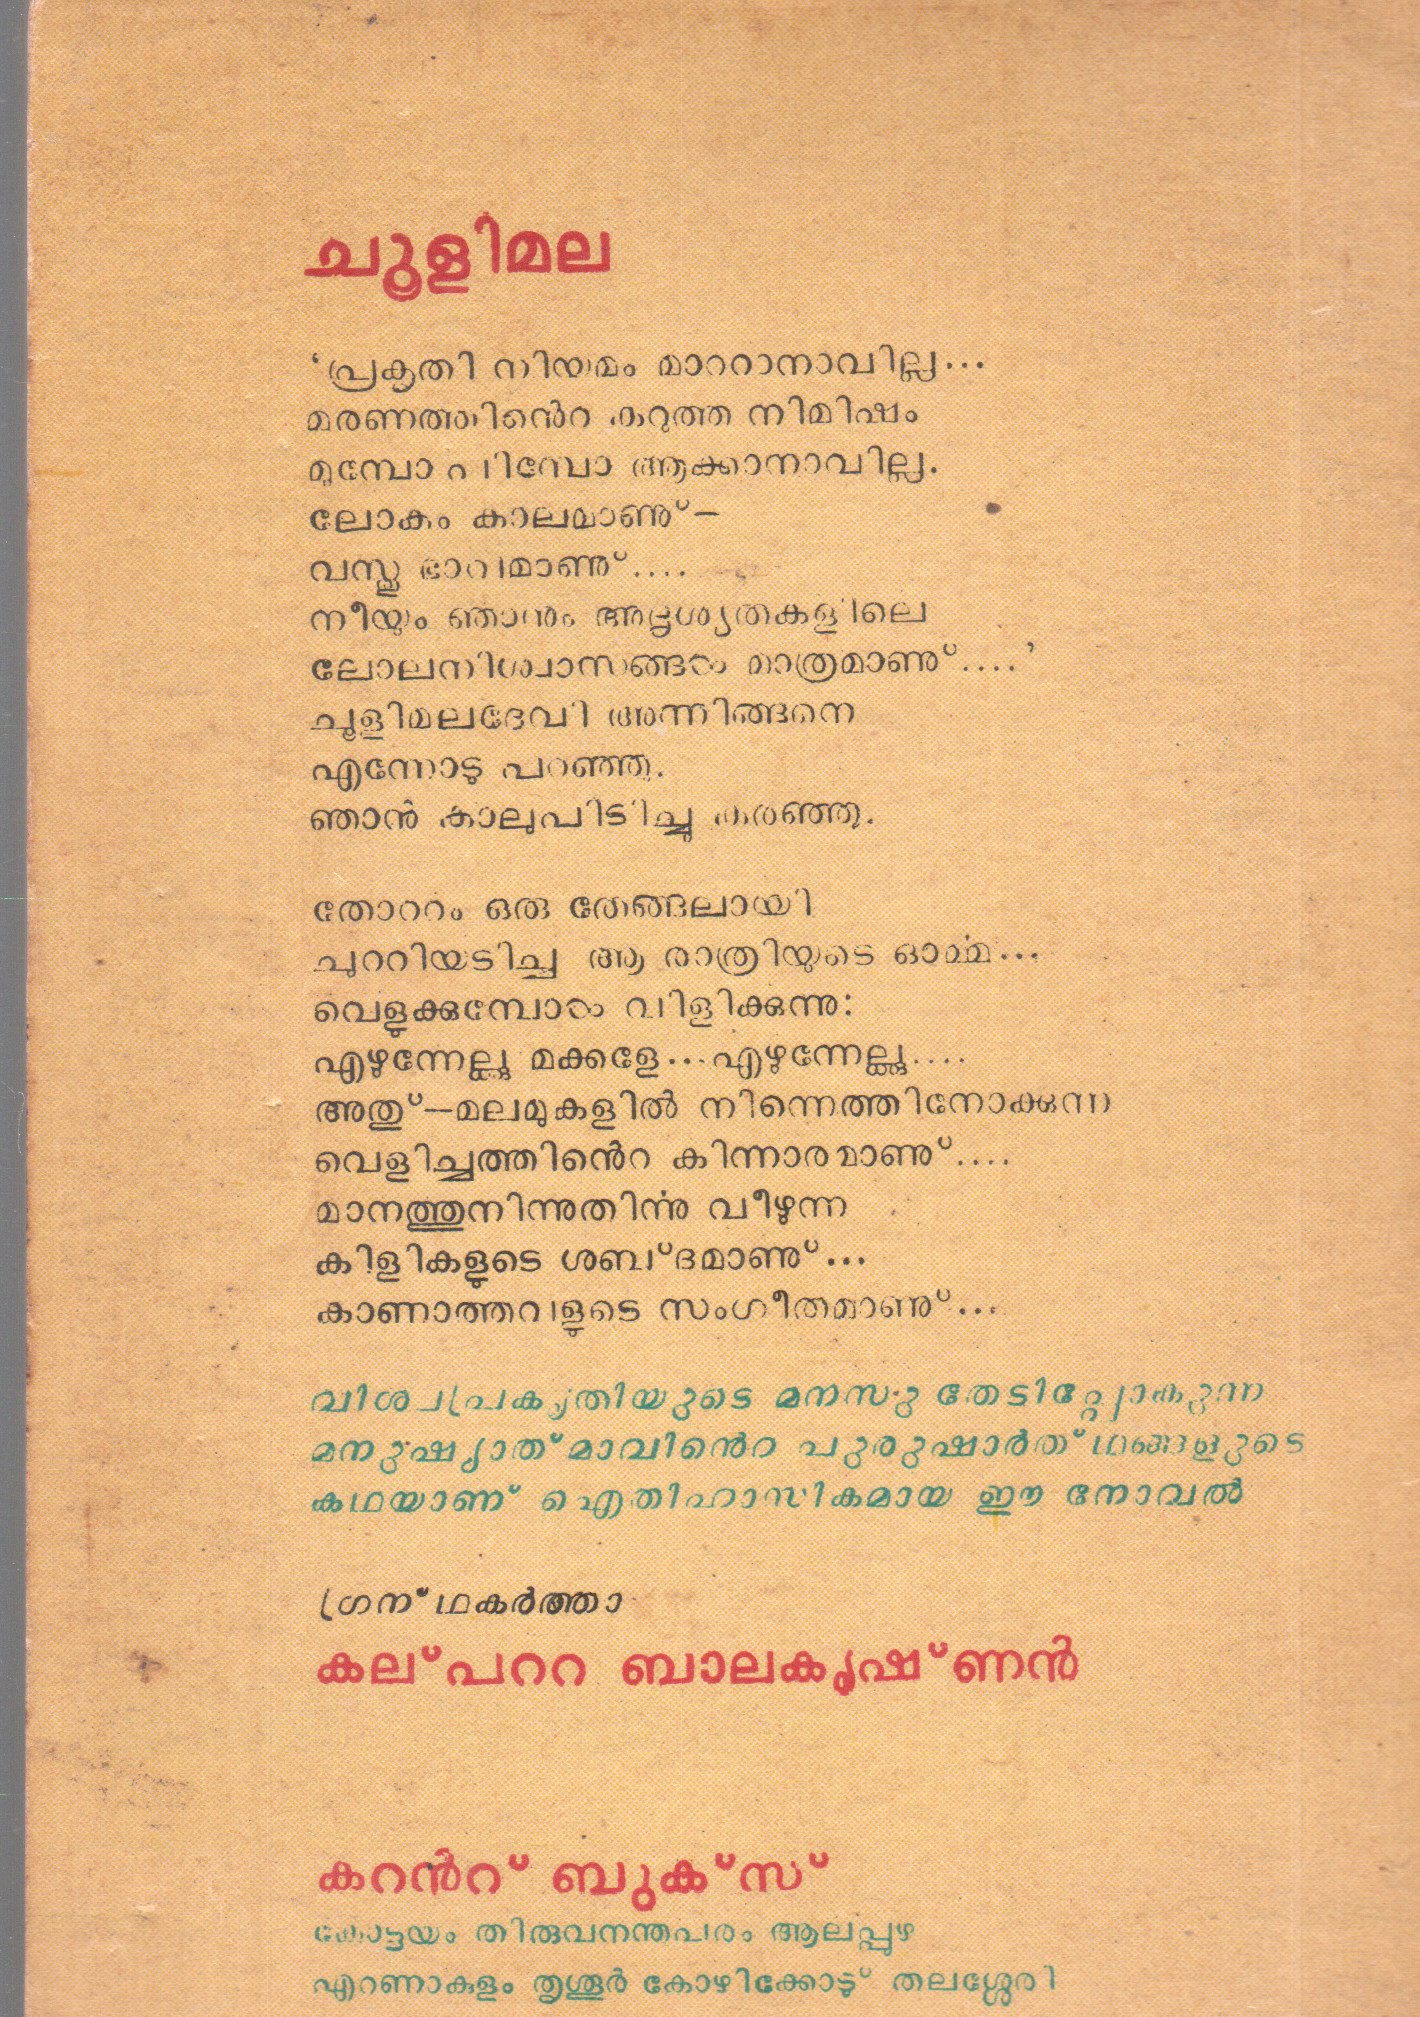 ചൂളിമല
‘പ്രകൃതി നിയമം മാററാനാവില്ല...
മരണത്തിൻെറ കറുത്ത നിമിഷം
മുമ്പോ പിമ്പോ ആക്കാനാവില്ല.
ലോകം കാലമാണു്—
വസ്തു ഭാവമാണു്....
നീയും ഞാനും അദൃശ്യതകളിലെ
ലോലനിശ്വാസങ്ങൾ മാത്രമാണു്....’
ചൂളിമലദേവി അന്നിങ്ങനെ
എന്നോടു പറഞ്ഞു.
ഞാൻ കാലുപിടിച്ചു കരഞ്ഞു.
തോററം ഒരു തേങ്ങലായി
ചുററിയടിച്ച ആ രാത്രിയുടെ ഓർമ്മ...
വെളുക്കുമ്പോൾ വിളിക്കുന്നു:
എഴുന്നേല്ലൂ മക്കളേ...എഴുന്നേല്ലൂ....
അതു്—മലമുകളിൽ നിന്നെത്തിനോക്കുന്ന
വെളിച്ചത്തിൻെറ കിന്നാരമാണു്....
മാനത്തുനിന്നുതിർന്നു വീഴുന്ന
കിളികളുടെ ശബ്ദമാണു്...
കാണാത്തവളുടെ സംഗീതമാണു്...
വിശ്വപ്രകൃതിയുടെ മനസ്സു തേടിപ്പോകുന്ന
മനുഷ്യാത്മാവിൻെറ പുരുഷാർത്ഥങ്ങളുടെ
കഥയാണ് ഐതിഹാസികമായ ഈ നോവൽ
ഗ്രന്ഥകർത്താ
കല്പററ ബാലകൃഷ്ണൻ
കറൻറ് ബുക്സ്
കോട്ടയം തിരുവനന്തപുരം ആലപ്പുഴ
എറണാകുളം തൃശൂർ കോഴിക്കോടു് തലശ്ശേരി